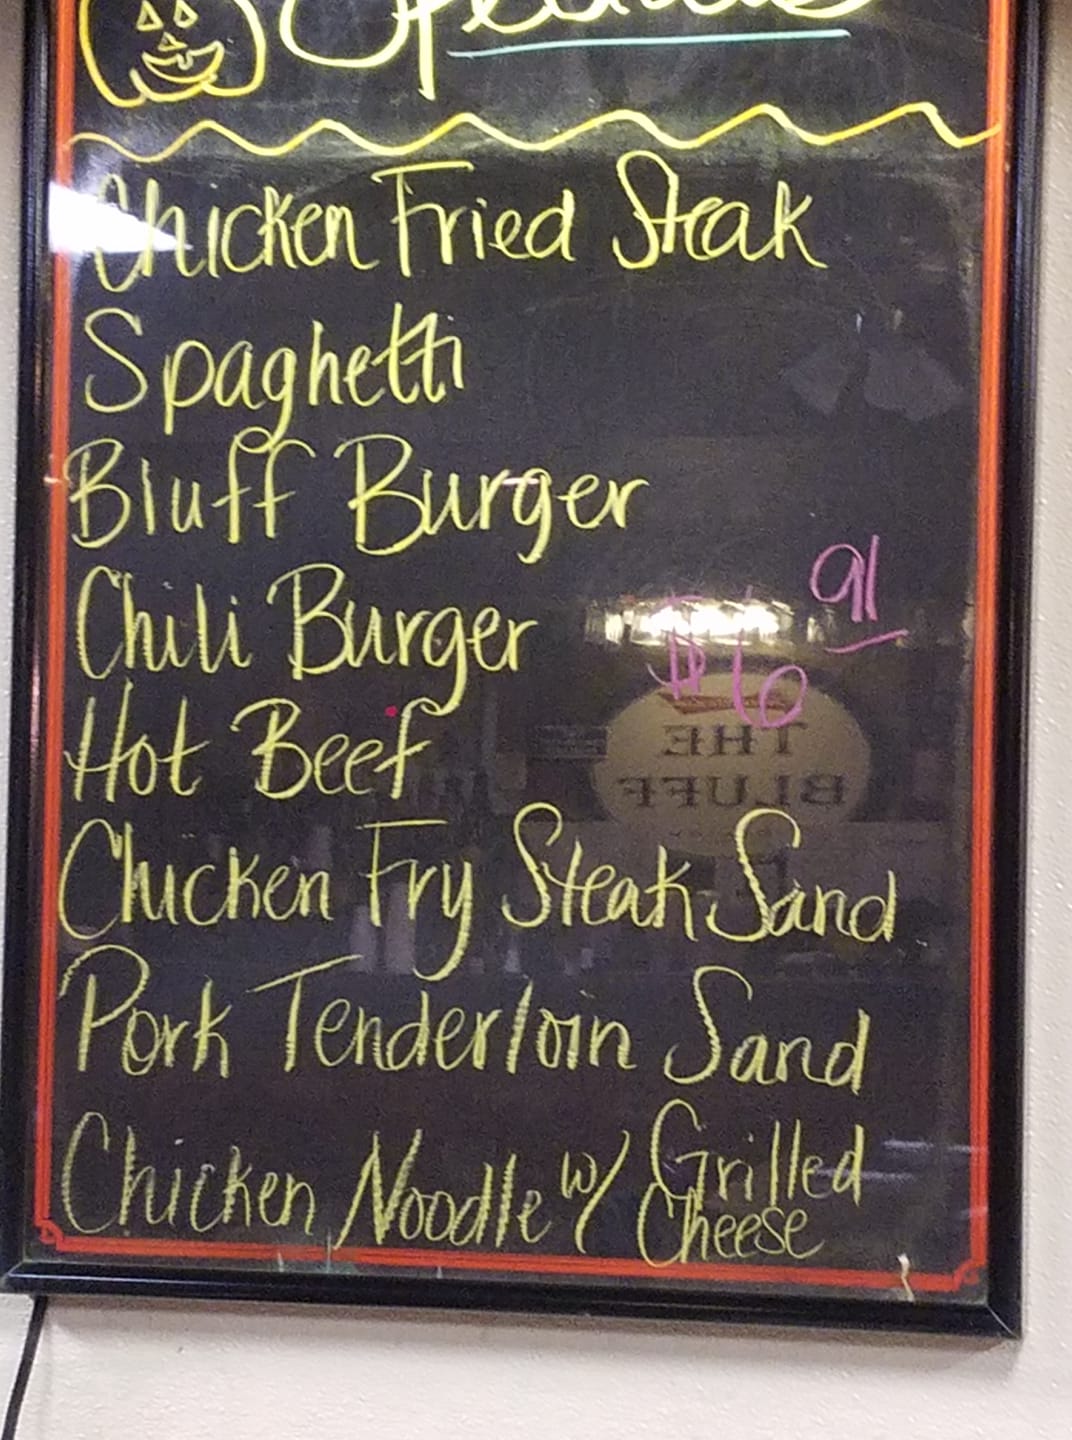 Specials
Chicken Fried Steak
Spaghetti
Bluff Burger
Chili Burger
$6 91
Hot Beef
THE
BLUFF
Chicken Fry Steak Sand
Pork Tenderloin Sand
Chicken Noodle w/ Grilled
Cheese